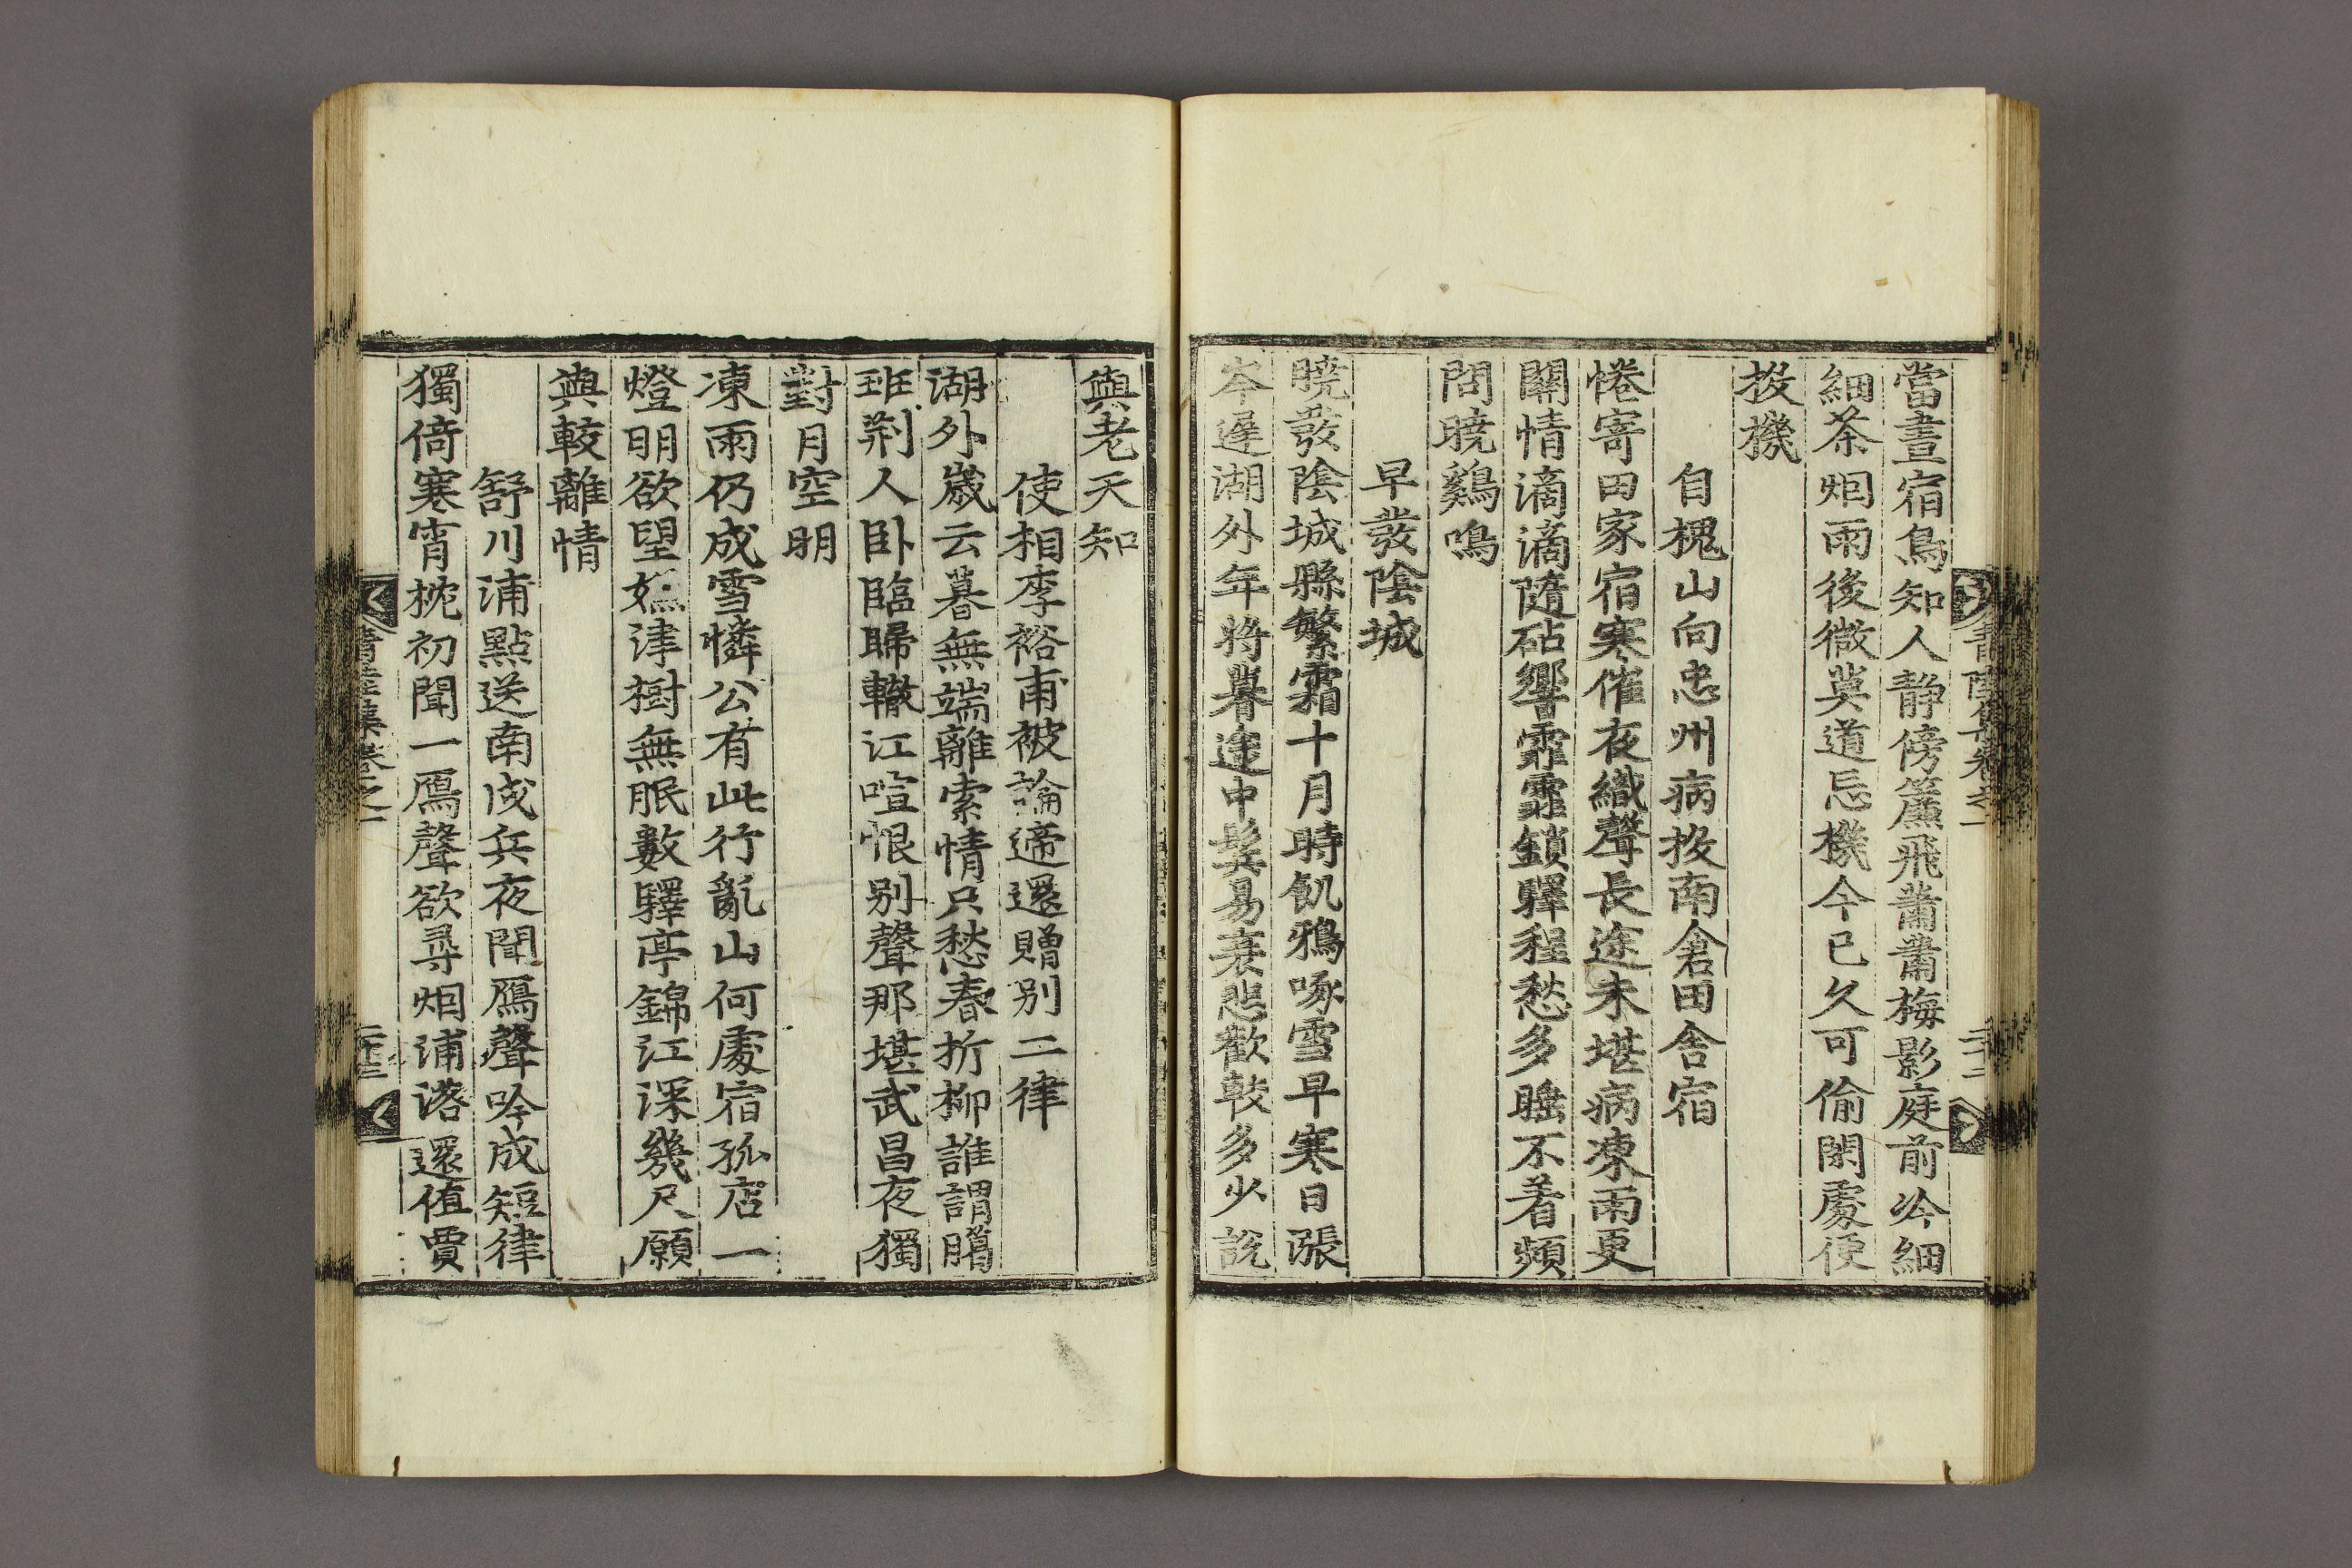 當晝宿鳥知人静傍簾飛蕭蕭梅影庭前吟細
細茶烟雨後微莫道忘機今已久可偷閑處便
投機
自槐山向忠州病投南倉田舍宿
惓寄田家宿寒催夜織聲長途未堪病凍雨更
關情滴滴隨砧響霏霏鎖驛程愁多睡不着頻
問曉鷄鳴
早發陰城
曉發陰城縣繁霜十月時飢鴉啄雪早寒日漲
岑遲湖外年將暮途中鬂易衰悲歡較多少說
與老天知
使相李裕甫被論遞還贈別二律
湖外歲云暮無端離索情只愁春折柳誰謂臈
班荆人卧臨歸轍江喧恨别聲那堪武昌夜獨
對月空明
凍雨仍成雪憐公有此行亂山何處宿孤店一
燈明欲望嫵津樹無眠數驛亭錦江深幾尺願
與較離情
舒川浦點送南戍兵夜聞鴈聲吟成短律
獨倚寒宵枕初聞一鴈聲欲尋烟浦落還値賈
青陸集卷之一